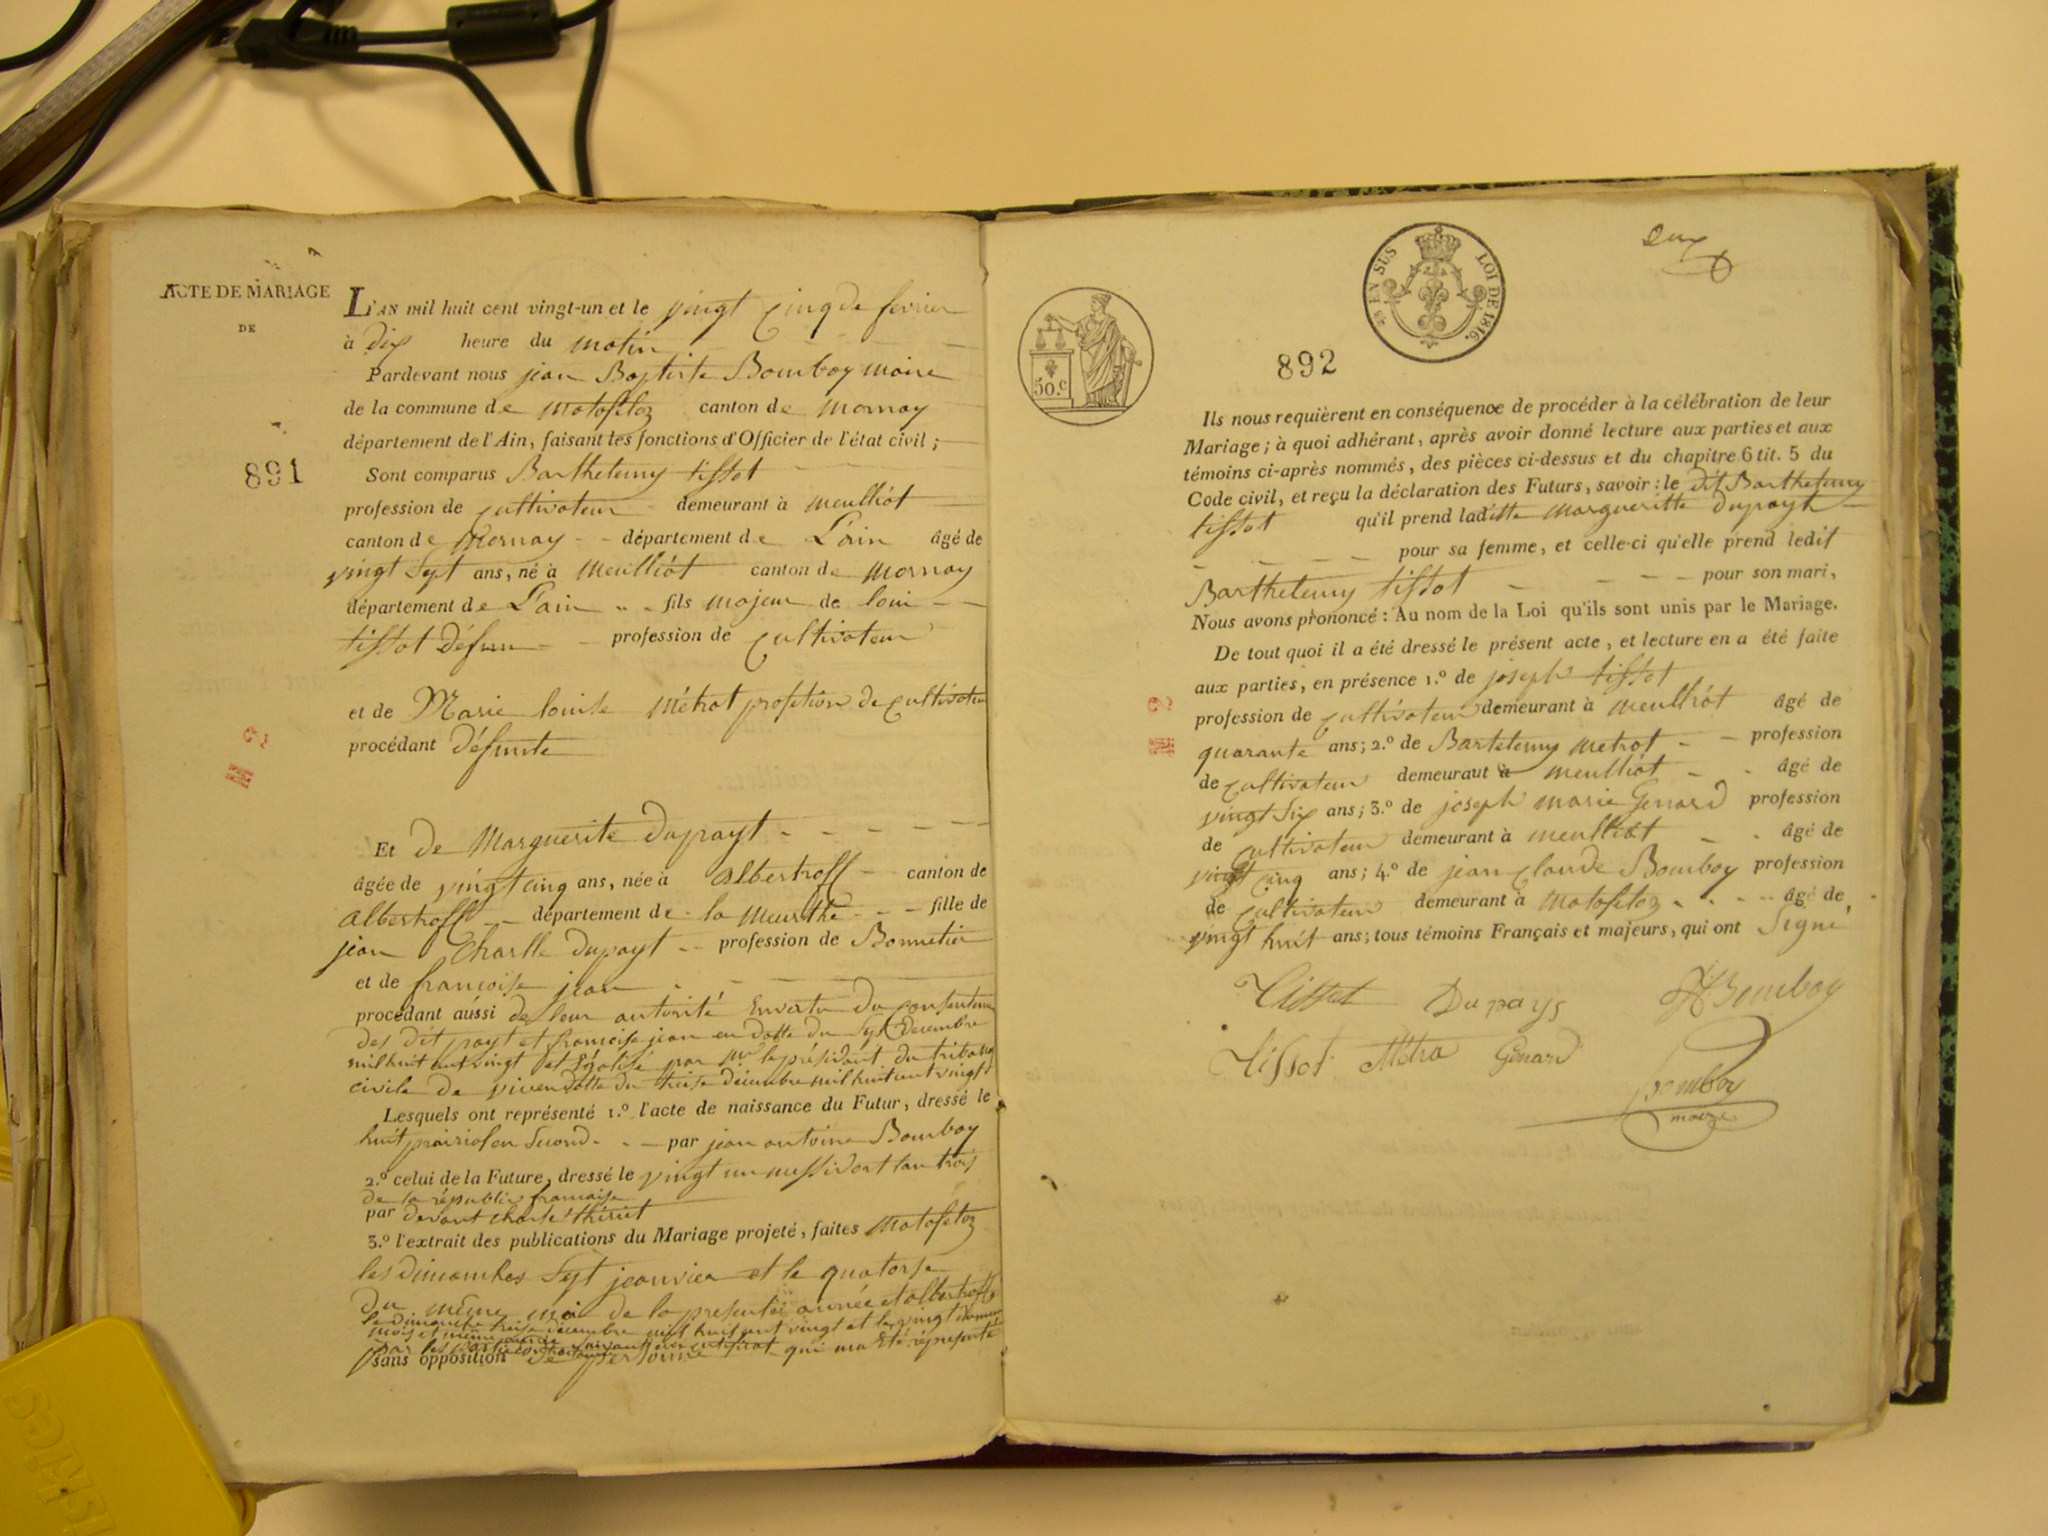 ACTE DE MARIAGE
DE
891
L'AN mil huit cent vingt-un et le vingt cinq de fevrier
à dix heure du matin
Pardevant nous jean Baptiste Bomboy maire
de la commune de matafelon canton de mornay
département de l'Ain, faisant les fonctions d'Officier de l'état civil;
Sont comparus Barthelemy tissot
profession de cultivateur demeurant à meulliat
canton de Mornay département de L'ain âgé de
vingt sept ans, né à meulliat canton de mornay
département de L'ain fils majeur de loui
tissot défun profession de cultivateur
et de Marie louise Métrat profetion de cultivateur
procédant défunte
Et de Marguerite dupayt
âgée de vingt cinq ans, née à albestroff canton de
albestroff département de la meurthe fille de
jean Charlle dupayt profession de Bonnetier
et de francoise jean
procédant aussi de leur autorité En vertu du consentem
des dit payt et francoise jean en datte du sept decembre
mil huit cent vingt et légalisé par mr le président du tribunal
civile de vic en datte du treise decembre mil huit cent vingt
Lesquels ont représenté 1.º l'acte de naissance du Futur, dressé le
huit prairial en second par jean antoine Bomboy
2.º celui de la Future, dressé le vingt un messidort l'an trois
de la républic francaise
par devant charle thiriet
3.º l'extrait des publications du Mariage projeté, faites matafelon
les dimanches sept jeanvier et le quatorse
du même moi de la presente année et albestroff
le dimanche treise decembre mil huit cent vingt et le vingt
mois et même année
par les certificat qui ma été représenté
sans opposition de personne
EN SUS LOI DE 1816.
50.c
deux
892
Ils nous requièrent en conséquence de procéder à la célébration de leur
Mariage; à quoi adhérant, après avoir donné lecture aux parties et aux
témoins ci-après nommés, des pièces ci-dessus et du chapitre 6 tit. 5 du
Code civil, et reçu la déclaration des Futurs, savoir: le dit Barthelemy
tissot qu'il prend laditte margueritte dupayt
pour sa femme, et celle-ci qu'elle prend ledit
Barthelemy tissot pour son mari,
Nous avons prononcé: Au nom de la Loi qu'ils sont unis par le Mariage.
De tout quoi il a été dressé le présent acte, et lecture en a été faite
aux parties, en présence 1.º de joseph tissot
profession de cultivateur demeurant à meulliat âgé de
quarante ans; 2.º de Bartelemy metrat profession
de cultivateur demeuraut à meulliat âgé de
vingt six ans; 3.º de joseph marie Genard profession
de cultivateur demeurant à meulliat âgé de
vingt cinq ans; 4.º de jean claude Bomboy profession
de cultivateur demeurant à matafelon âgé de
vingt huit ans; tous témoins Français et majeurs, qui ont signé
Tissot Dupays Bomboy
Tissot Métra Génard
Bomboy
maire